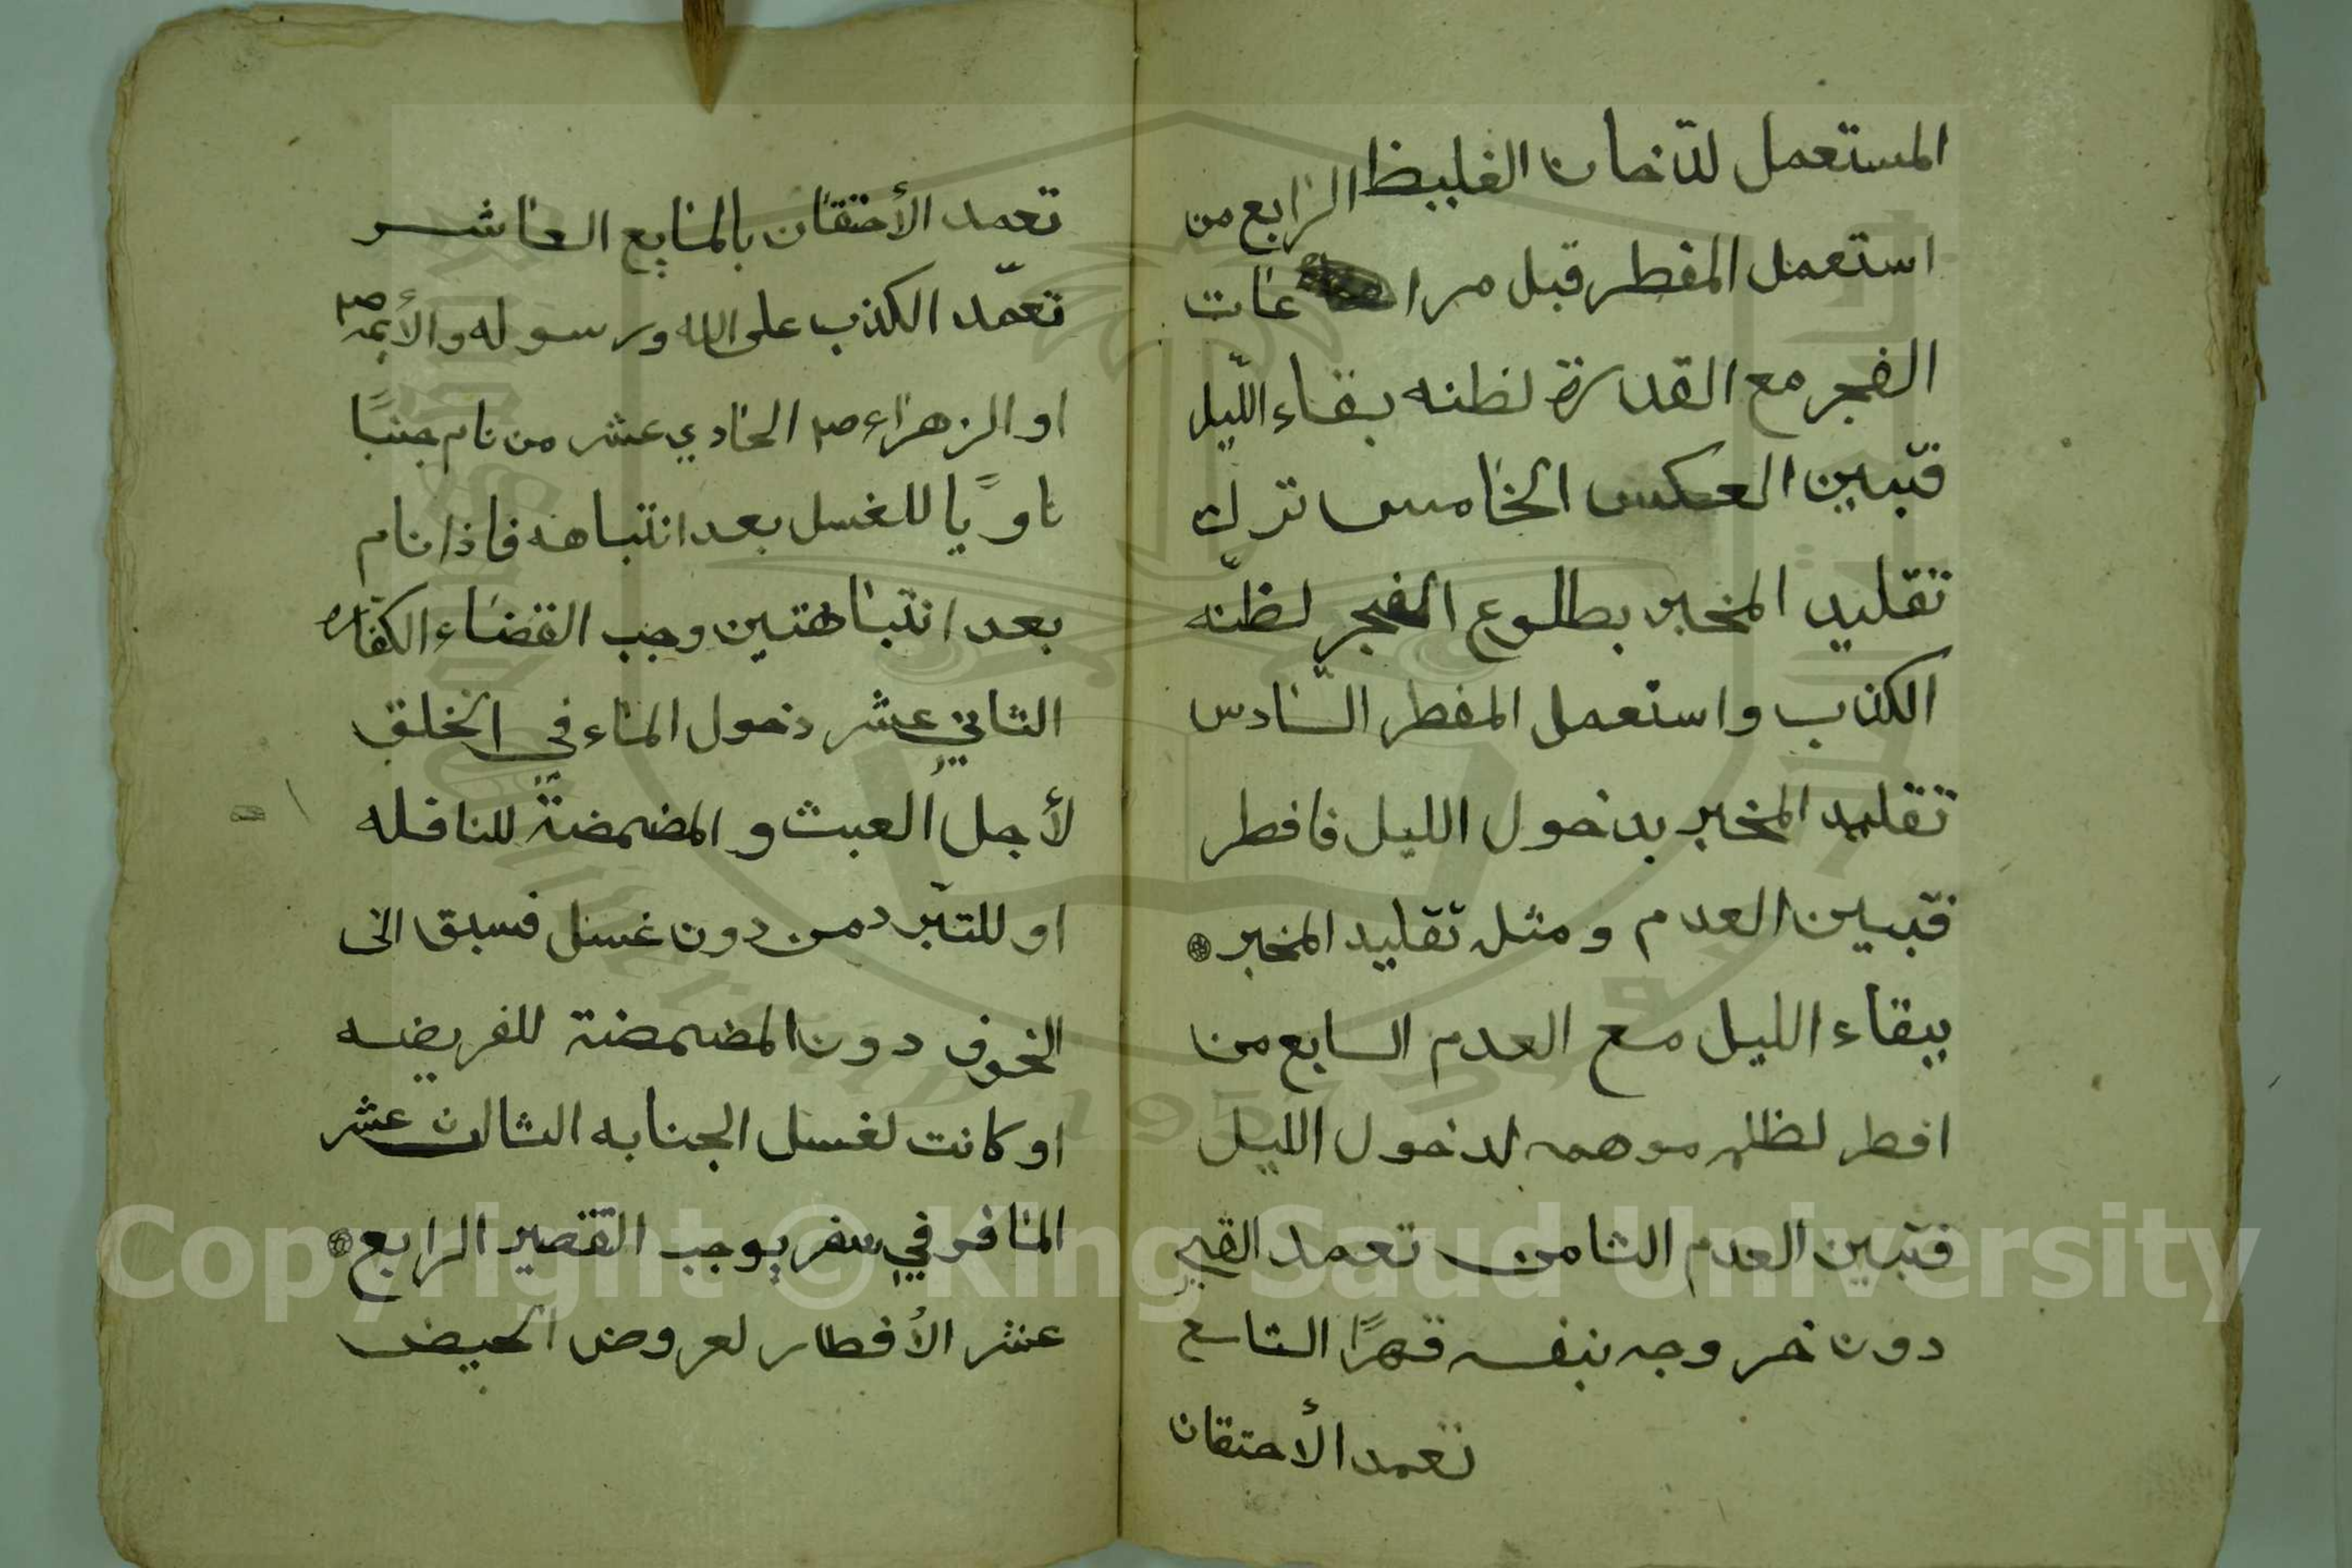 المستعمل للدخان الغليظ الرابع من
استعمل المفطر قبل مراعات
الفجر مع القدرة لظنه بقاء اللّيل
فتبين العكس الخامس ترك
تقليد المخبر بطلوع الفجر لظنّه
الكذب واستعمل المفطر السّادس
تقليد المخبر بدخول الليل فافطر
فتبين العدم ومثل تقليد المخبر
ببقاء الليل مع العدم السابع من
افطر لظلمه موهمه لدخول الليل
فتبين العدم الثامن تعمد القي
دون خروجه بنفسه قهرًا التاسع
تعمد الأحتقان
تعمد الأحتقان بالمايع العاشر
تعمّد الكذب على الله ورسوله والأئمه
او الزهراء الحادي عشر من نام جنبًا
ناويًا للغسل بعد انتباهه فاذا نام
بعد انتباهتين وجب القضاء الكفاره
الثاني عشر دخول الماء في الحلق
لأجل العبث والمضمضة للنافله
او للتبّرد من دون غسل فسبق الى
الجوف دون المضمضة للفريضه
او كانت لغسل الجنابه الثالث عشر
المسافر في سفر يوجب القصير الرابع
عشر الأفطار لعروض الحيض
Copyright © King Saud University
1957